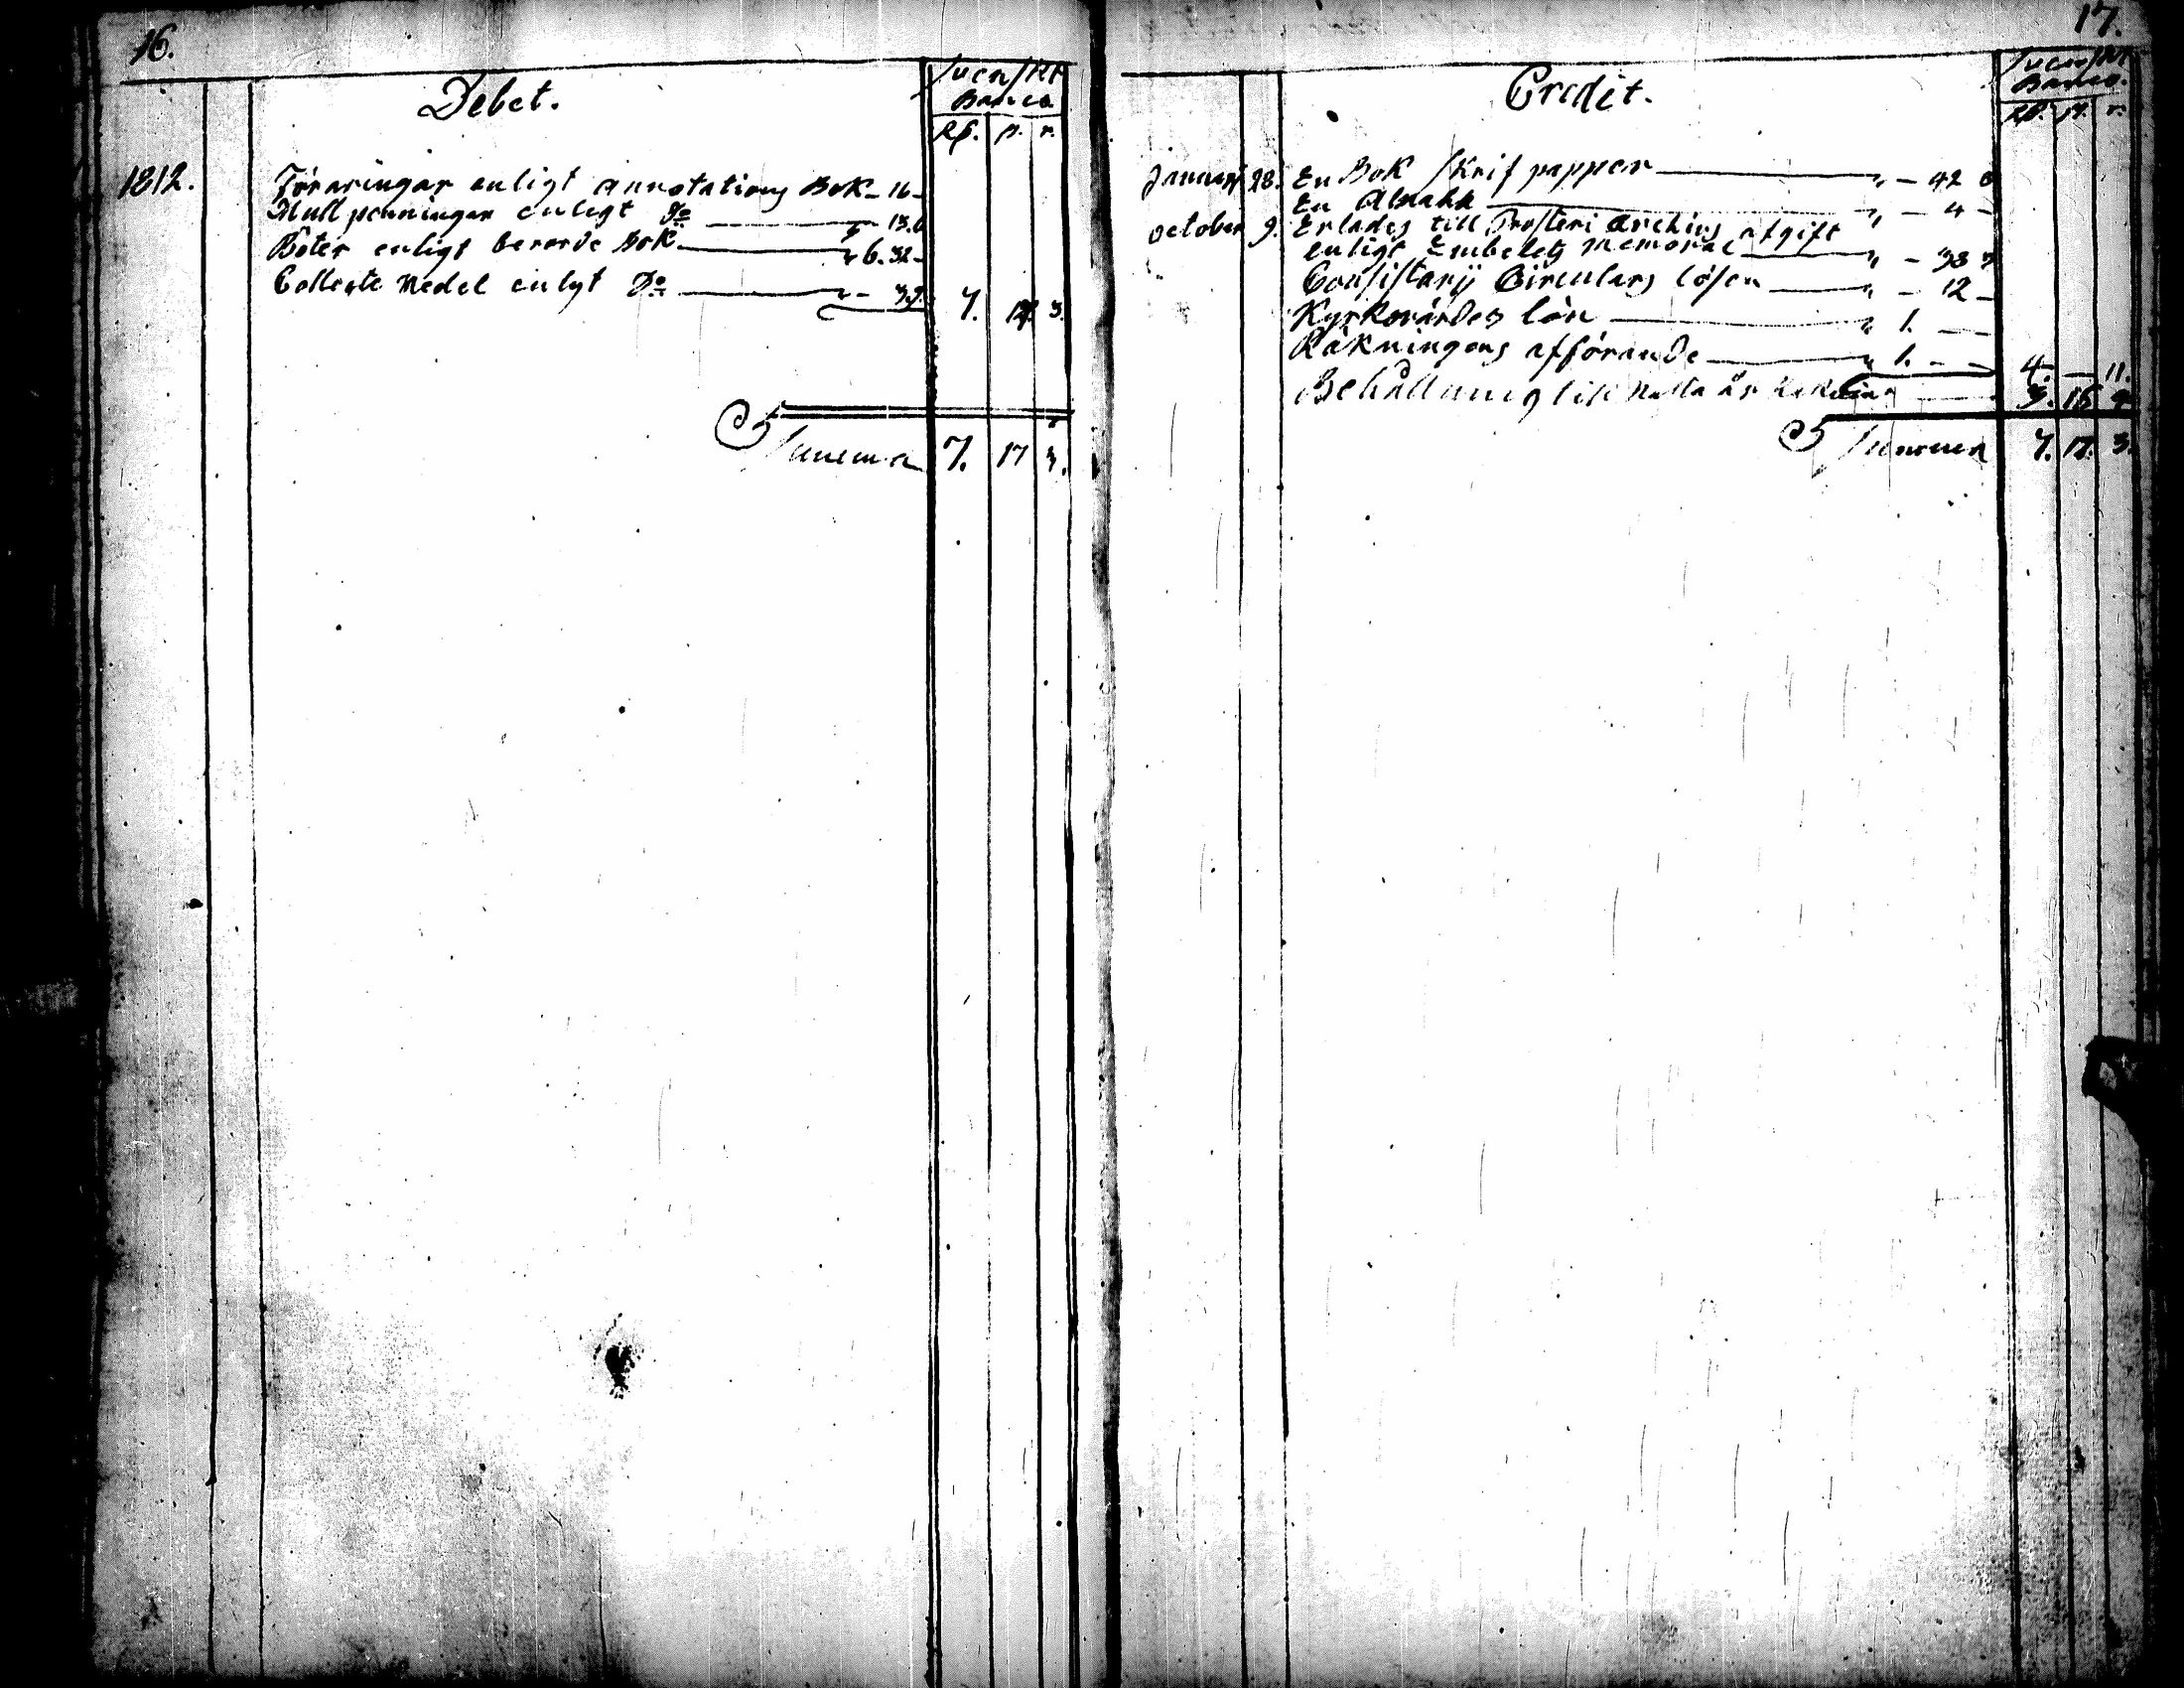 16.
Debet.
Svenskt
Banco
Rd. sk. r.
1812.
Föraringar enligt annotations Bok - 16 -
Mull penningar enligt Do — „ 13. 6
Böter enligt berorde Bok — „ 6. 32 -
Collecte Medel enligt Do — „ - 3. 9. 7. 17. 3.
Summa 7. 17 3.
17.
Credit.
Svenskt
Banco.
Rd. sk. r.
Januarii 28. En Bok Skrif papper — „ - 42 8
En Almakk — „ - 4 -
October 9. Erlades till Prosteri Archivs afgift
enligt Embetets Memorial — „ - 38 3
Consistorii Circulars lösen — „ - 12 -
Kyrkovärdes lön — „ 1. - -
Räkningens afförande — „ 1. - - 4. - 11.
Behållning till Nästa år — 3. 16 4
Summa 7. 17. 3.